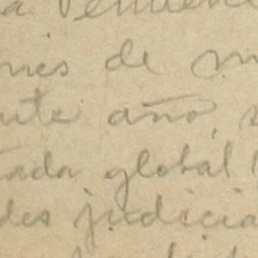 a
nes de m
nte año,
ada global
des judicia